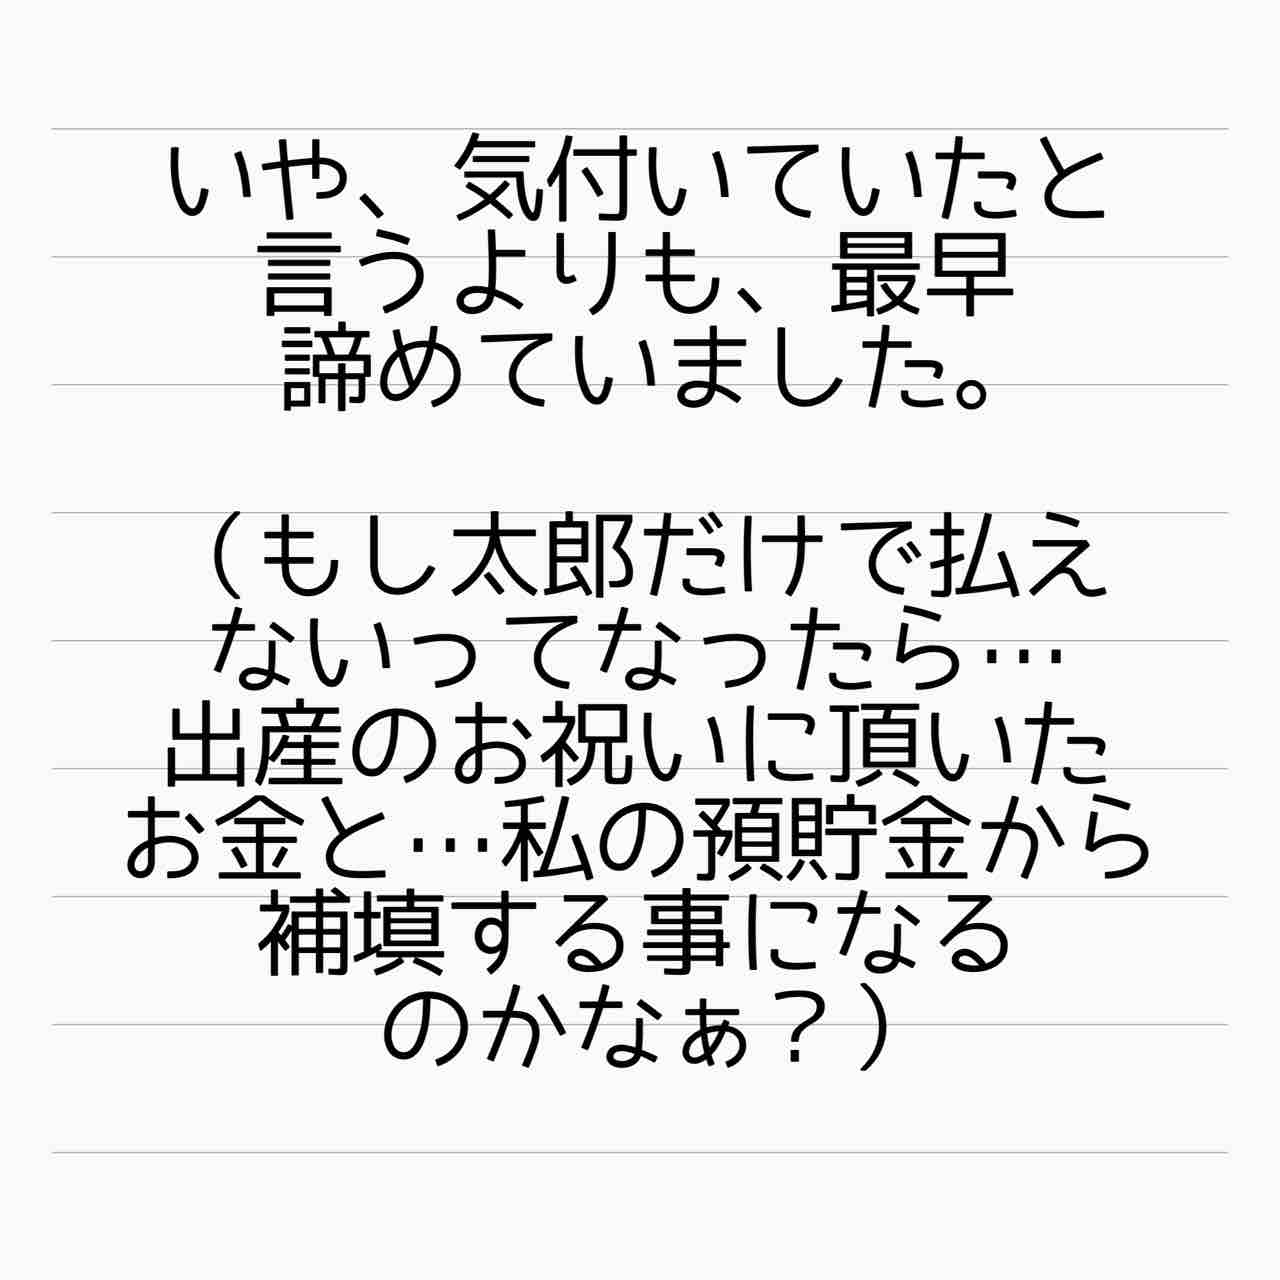 いや、気付いていたと
言うよりも、最早
諦めていました。
（もし太郎だけで払え
ないってなったら…
出産のお祝いに頂いた
お金と…私の預貯金から
補填する事になる
のかなぁ？）